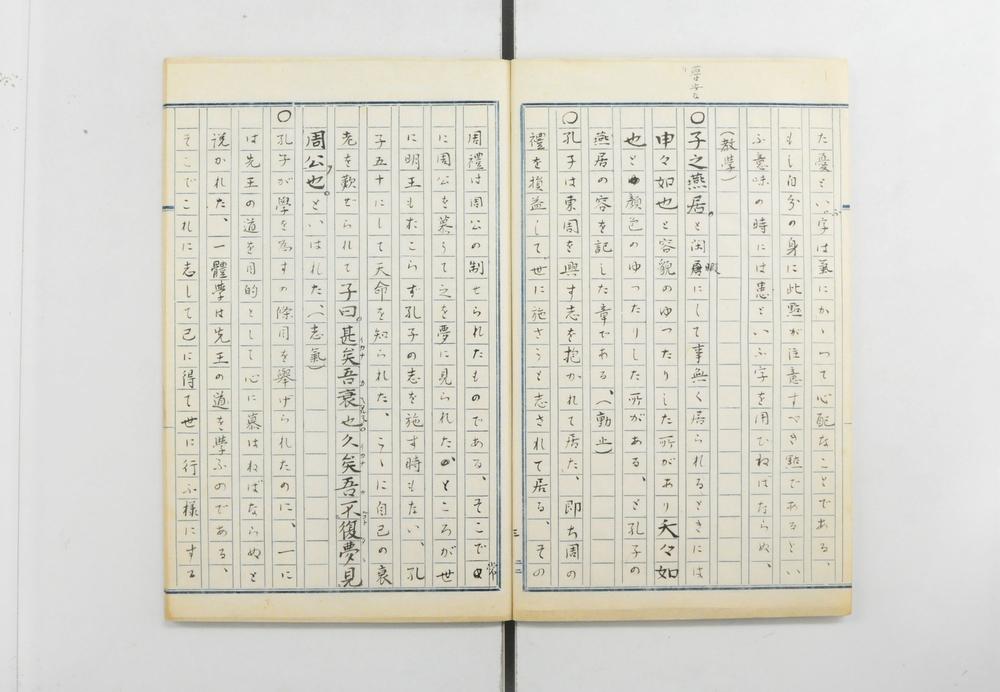 た憂といふ字は氣にかゝつて心配なことである、
もし自分の身に此點が注意すべき點であるとい
ふ意味の時には患といふ字を用ひねばならぬ、
(教學)
〇子之燕居。と閑暇にして事無く居られるときには
申々如也と容貌のゆつたりした所があり夭々如
也と顔色のゆつたりした所がある、と孔子の
燕居の容を記した章である、(動止)
〇孔子は東周を興す志を抱かれて居た、即ち周の
禮を損益して、世に施さうと志されて居る、その
三 二二
周禮は周公の制せられたものである、そこで常
に周公を慕うて之を夢に見られたがところが世
に明王もおこらず孔子の志を施す時もない、孔
子五十にして天命を知られた、こゝに自己の衰
老を歎ぜられて子曰。甚矣吾衰也久矣吾不復夢見
周公也。と、いはれた、(志氣)
〇孔子が學を為すの條目を舉げられたのに、一に
は先王の道を目的として心に慕はねばならぬと
説かれた、一體學は先王の道を學ふのである、
そこでこれに志して己に得て世に行ふ様にする